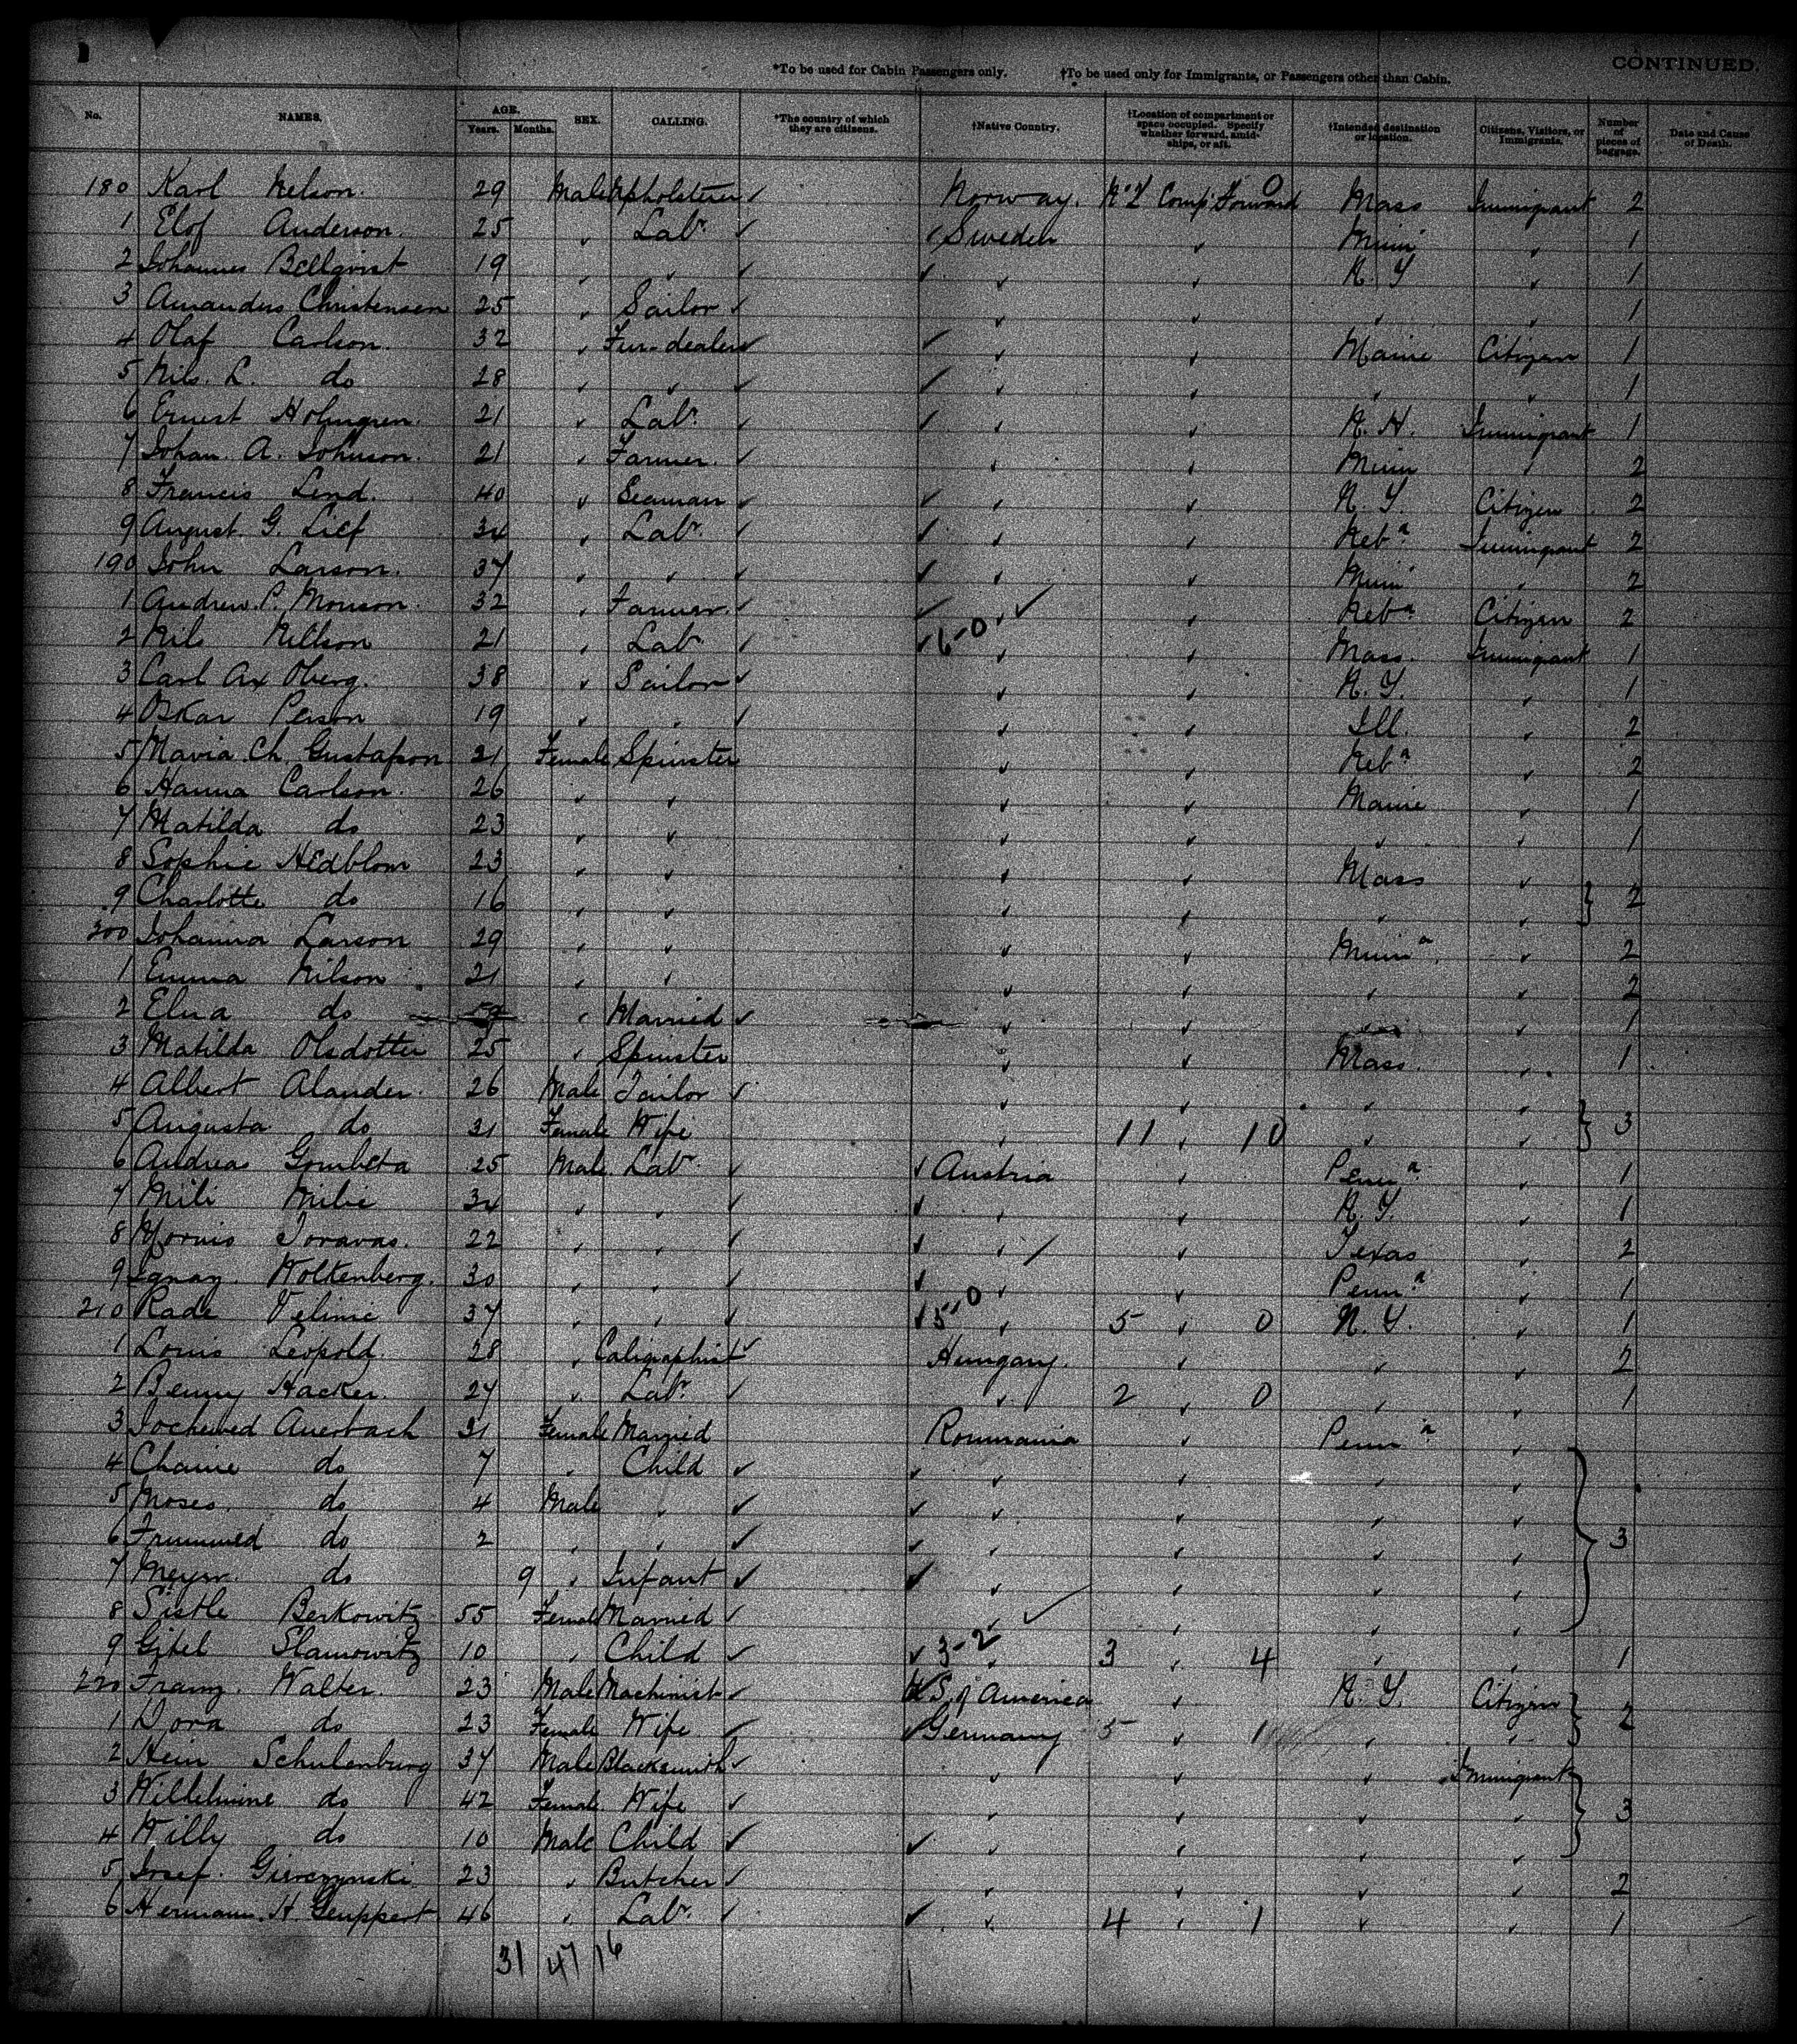 *To be used for Cabin Passengers only. †To be used only for Immigrants, or Passengers other than Cabin. CONTINUED.
No. NAMES. AGE. Years. Months. SEX. CALLING. *The country of which they are citizens. †Native Country. †Location of compartment or space occupied. Specify whether forward, amidships, or aft. †Intended destination or location. Citizens, Visitors, or Immigrants. Number of pieces of baggage. Date and Cause of Death.
180 Karl Nelson. 29 Male Upholsterer Norway. No 2 Comp: Forward Mass Immigrant 2
1 Elof Anderson. 25 " Labr Sweden " Minn " 1
2 Johannes Bellqvist 19 " " " " N. Y " 1
3 Amandus Christensen 25 " Sailor " " " " 1
4 Olaf Carlson. 32 " Fur-dealer " " Maine Citizen 1
5 Nils. L. do 28 " " " " " " 1
6 Ernest Holmgren. 21 " Labr " " N. H. Immigrant 1
7 Johan. A. Johnson. 21 " Farmer. " " Minn " 2
8 Francis Lend. 40 " Seaman " " N. Y. Citizen 2
9 August. G. Lief 34 " Labr " " Neba Immigrant 2
190 John Larson. 37 " " " " Minn " 2
1 Andrew. P. Monson. 32 " Farmer. " " Neba Citizen 2
2 Nils Nillson 21 " Labr 6-0 " " Mass. Immigrant 1
3 Carl Ax Oberg. 38 " Sailor " " N. Y. " 1
4 Oskar Person 19 " " " " Ill. " 2
5 Maria Ch. Gustafson 21 Female Spinster " " Neba " 2
6 Hanna Carlson. 26 " " " " Maine " 1
7 Matilda do 23 " " " " " " 1
8 Sophie Hedblom 23 " " " " Mass "
9 Charlotte do 16 " " " " " " 2
200 Johanna Larson 29 " " " " Minna " 2
1 Emma Nilson 21 " " " " " " 2
2 Elna do " Married " " " " 1
3 Matilda Olsdotter 25 " Spinster " " Mass. " 1
4 Albert Alander. 26 Male Tailor " " " "
5 Augusta do 31 Female Wife " 11 " 10 " " 3
6 Andreas Gombeta 25 Male Labr Austria " Penna " 1
7 Mili Milie 34 " " " " N. Y. " 1
8 Morris Toravas. 22 " " " " Texas " 2
9 Ignaz. Wolkenberg. 30 " " " " Penna " 1
210 Rade Velimi 37 " " 5-0 " 5 " 0 N. Y. " 1
1 Louis Leopold. 28 " Caligraphist Hungary. " " " 2
2 Benny Hacker. 27 " Labr " 2 " 0 " " 1
3 Jochewed Auerbach 31 Female Married Roumania " Penna "
4 Chaine do 7 " Child " " " "
5 Moses. do 4 Male " " " " "
6 Frummed do 2 " " " " " " 3
7 Meyer. do 9 " Infant " " " "
8 Sistle Berkowitz 55 Female Married " " " "
9 Gitel Slamowitz 10 " Child 3-2 " 3 " 4 " " 1
220 Franz. Walter. 23 Male Machinist U.S. of America " N. Y. Citizen
1 Dora do 23 Female Wife Germany 5 " 1 " " 2
2 Hein Schulenburg 37 Male Blacksmith " " " Immigrant
3 Willhelmine do 42 Female. Wife " " " " 3
4 Willy do 10 Male Child " " " "
5 Josef. 23 " Butcher " " " " 2
6 Hermann. H. Geuppert 46 " Labr. " 4 " 1 " " 1
31 47 16